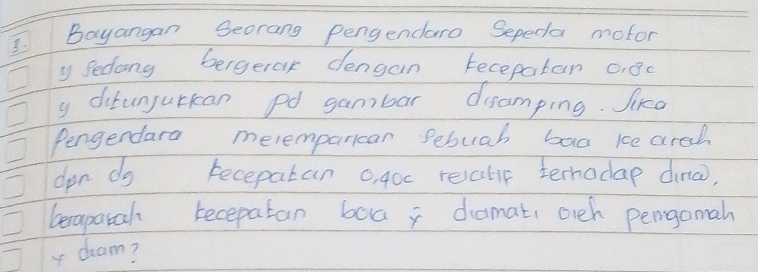 3. Bayangan seorang pengendara sepeda motor
y sedang bergerak dengan kecepatan 0,8c
y ditunjukkan pd gambar disamping. Jika
Pengendara melemparkan sebuah bola ke arah
dpn dg kecepatan 0,40c relatif terhadap dirinya,
berapakah kecepatan bola y diamati oleh pengamat
y diam?